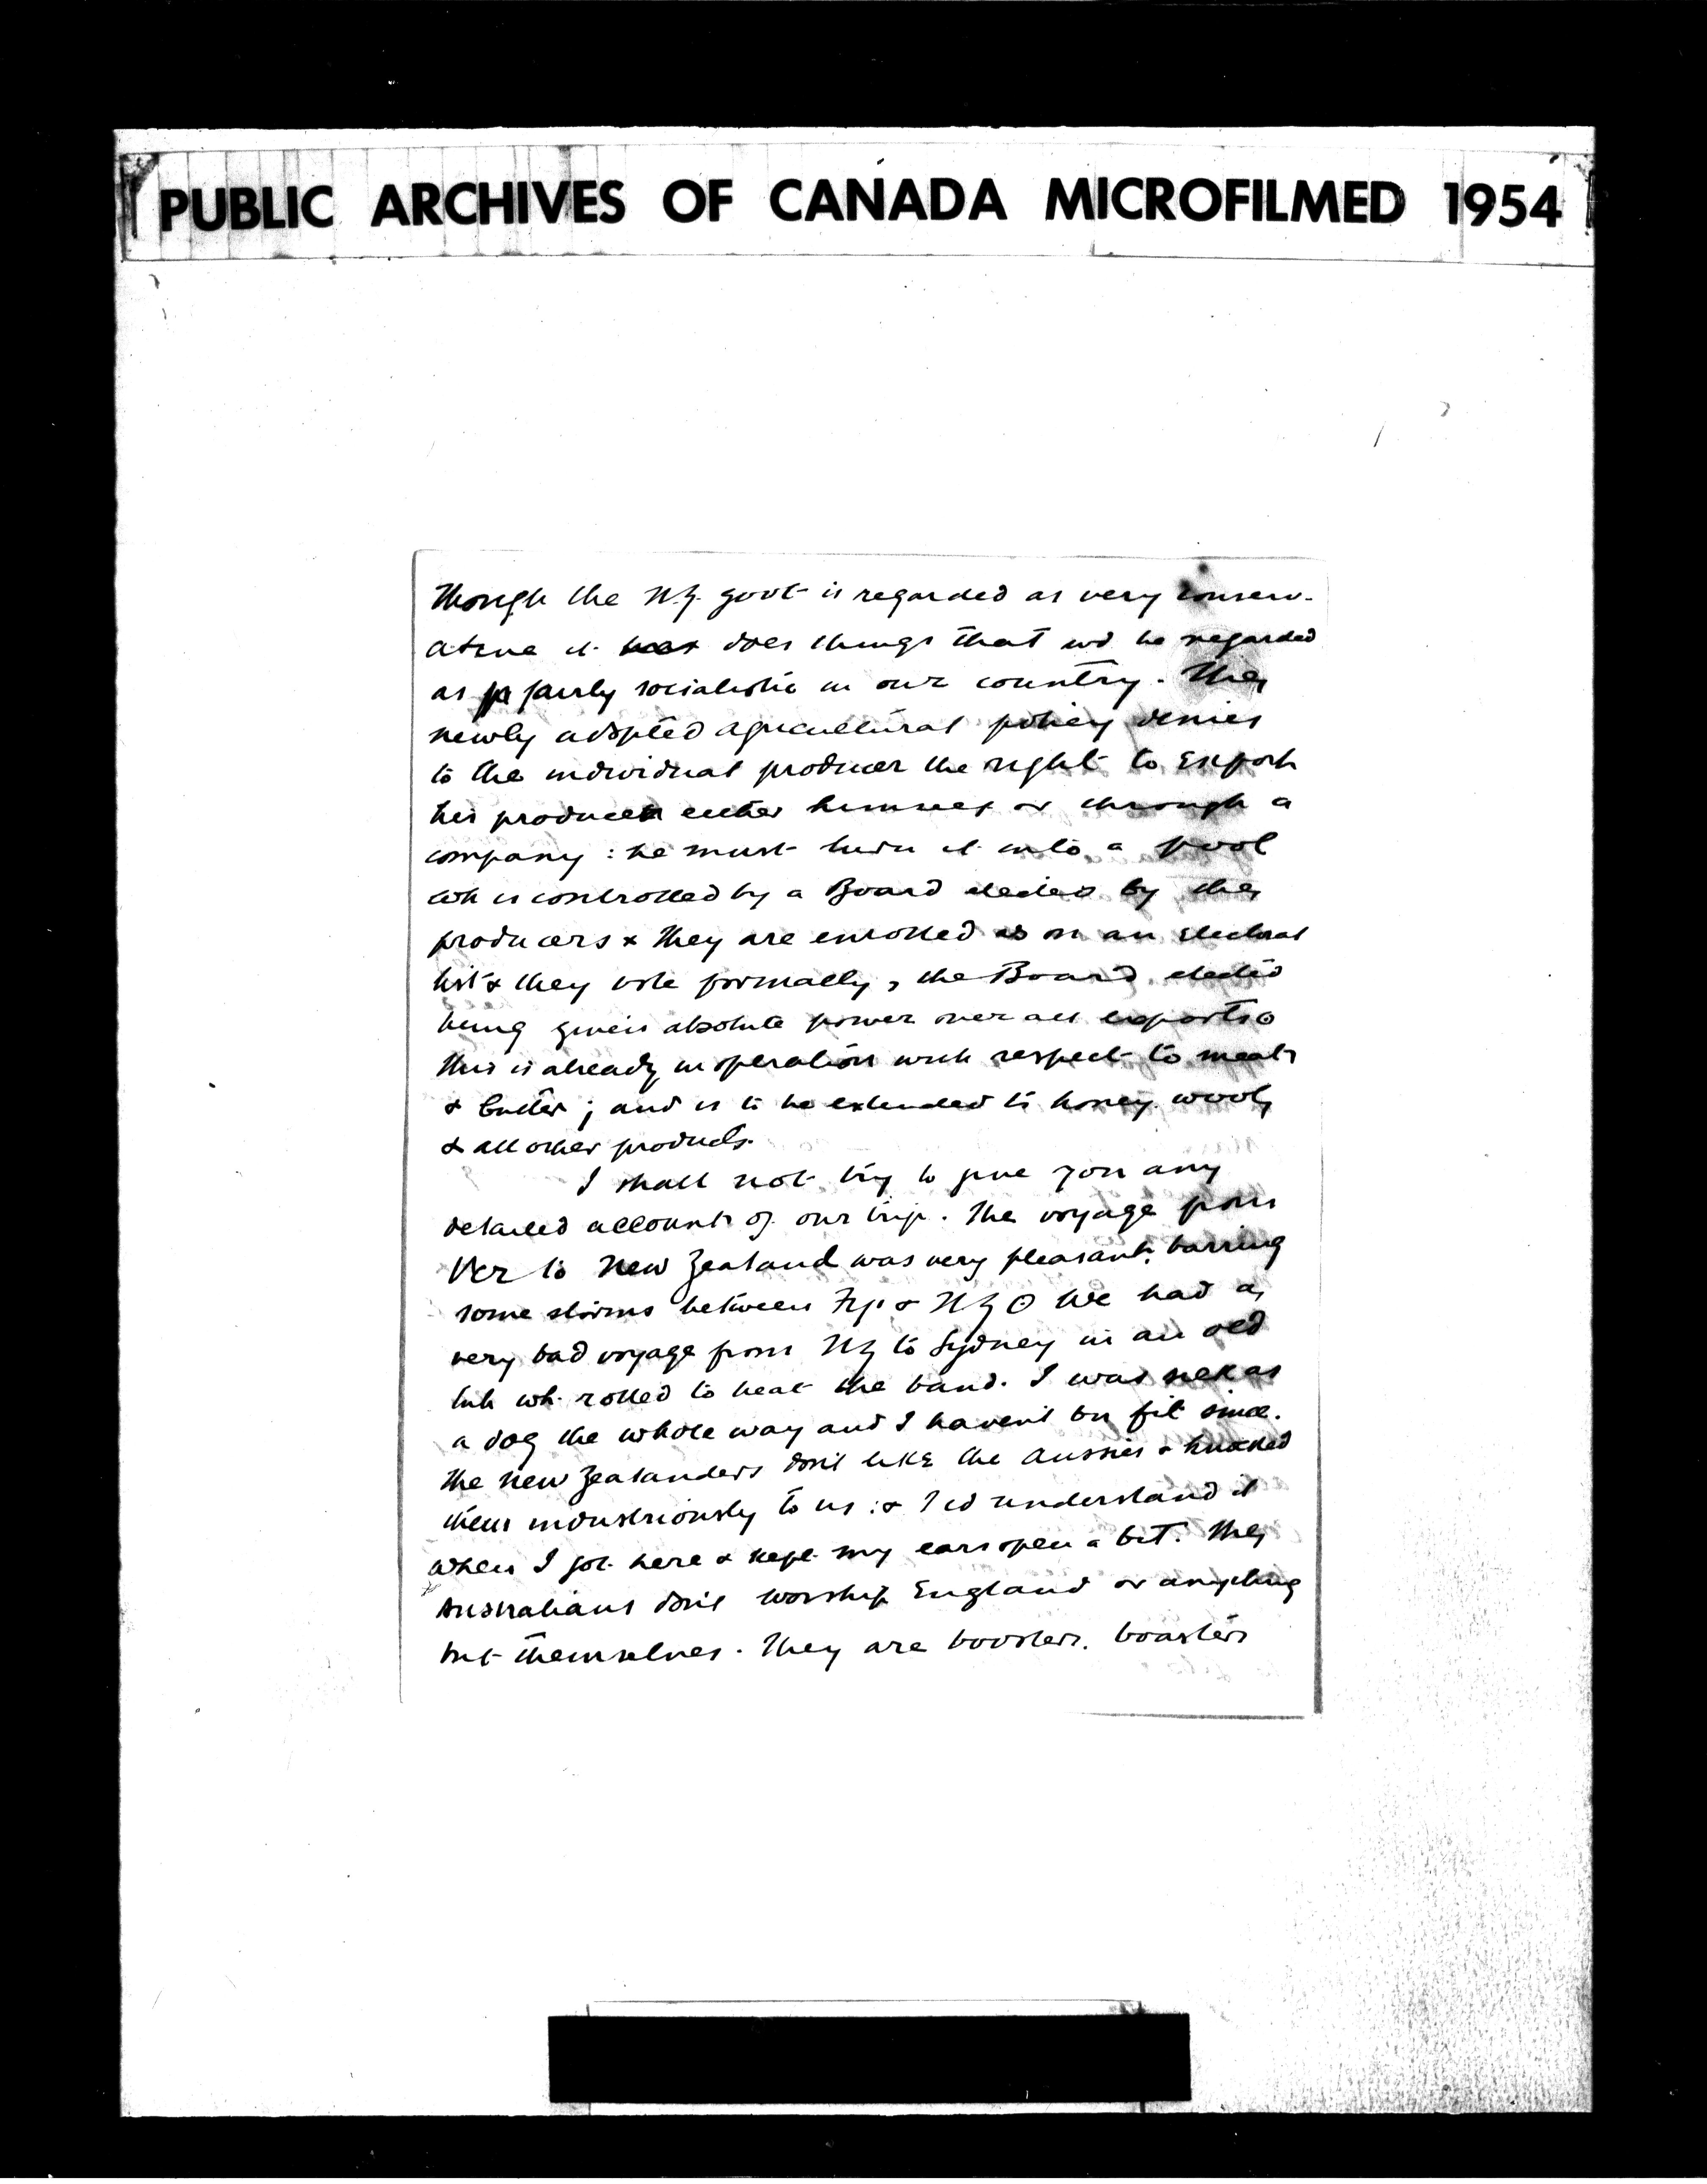 PUBLIC ARCHIVES OF CANADA MICROFILMED 1954
Though the N.Z. govt is regarded as very conserv-
ative it does things that wd be regarded
as fairly socialistic in our country. The
newly adopted agricultural policy denies
to the individual producer the right to export
his produce either himself or through a
company : he must turn it into a pool
wh is controlled by a Board elected by the
producers & they are enrolled on an electoral
list & they vote formally, the Board elected
being given absolute power over all exports.
This is already in operation with respect to meats
& butter ; and is to be extended to honey, wool,
& all other products.
I shall not try to give you any
detailed account of our trip. The voyage from
Ver to New Zealand was very pleasant, barring
some storms between Fiji & NZ. We had a
very bad voyage from NZ to Sydney in an old
tub wh. rolled to beat the band. I was sick as
a dog the whole way and I haven't bn fit since.
The New Zealanders don't like the Aussies & knocked
them industriously to us : & I cd understand it
when I got here & kept my ears open a bit. The
Australians don't worship England or anything
but themselves. They are boosters, boasters